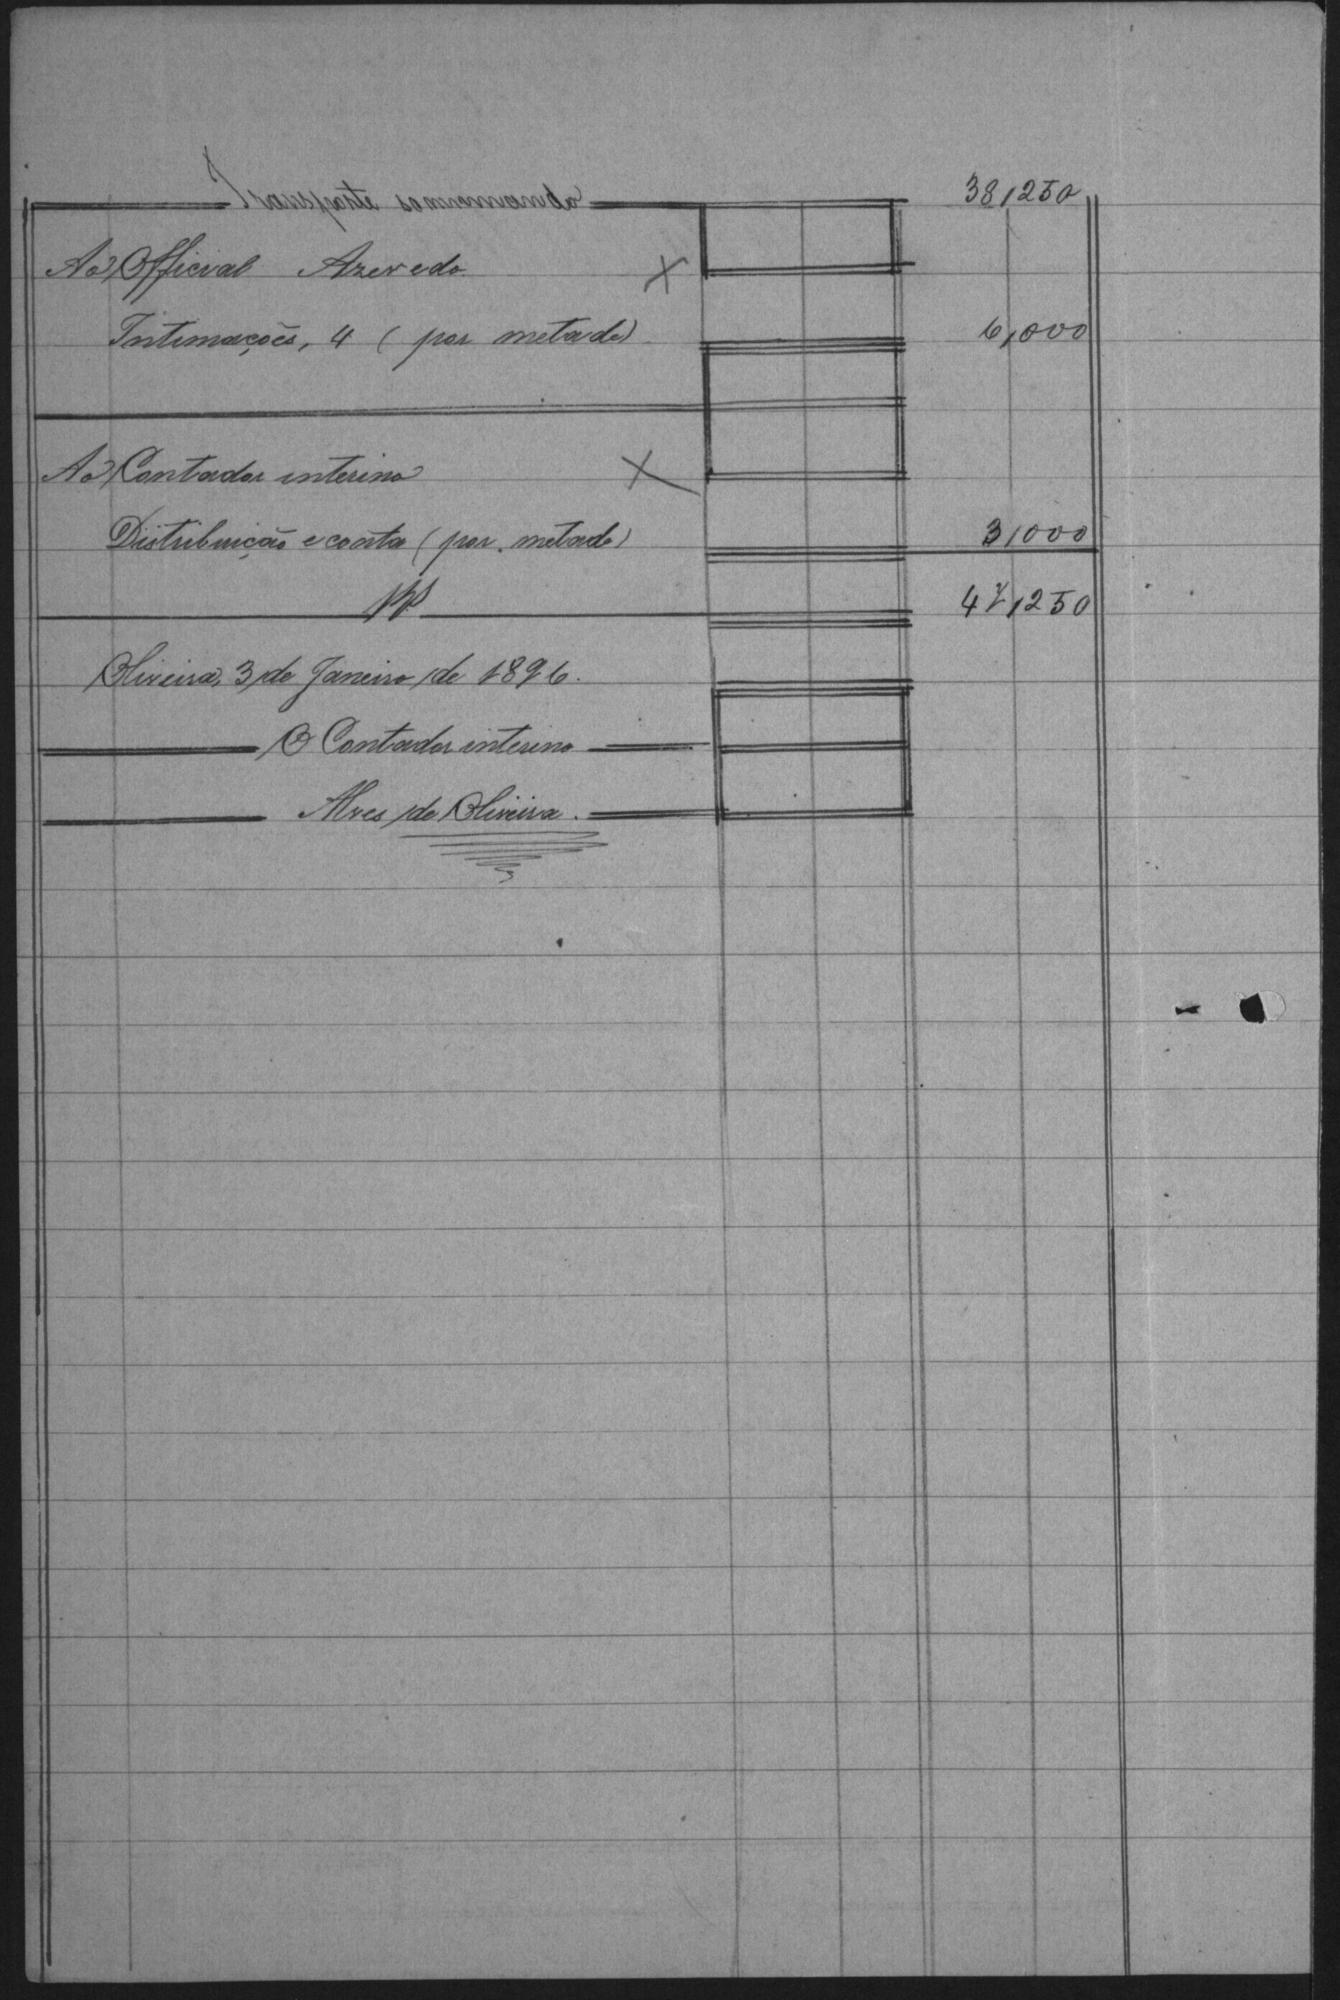 Transporte sommando 38,250
Ao Official Azevedo X
Intimações, 4 (por metade) 6,000
Ao Contador interino X
Distribuição e conta (por metade) 3,000
47,250
Oliveira, 3 de Janeiro de 1896.
O Contador interino
Alves de Oliveira.